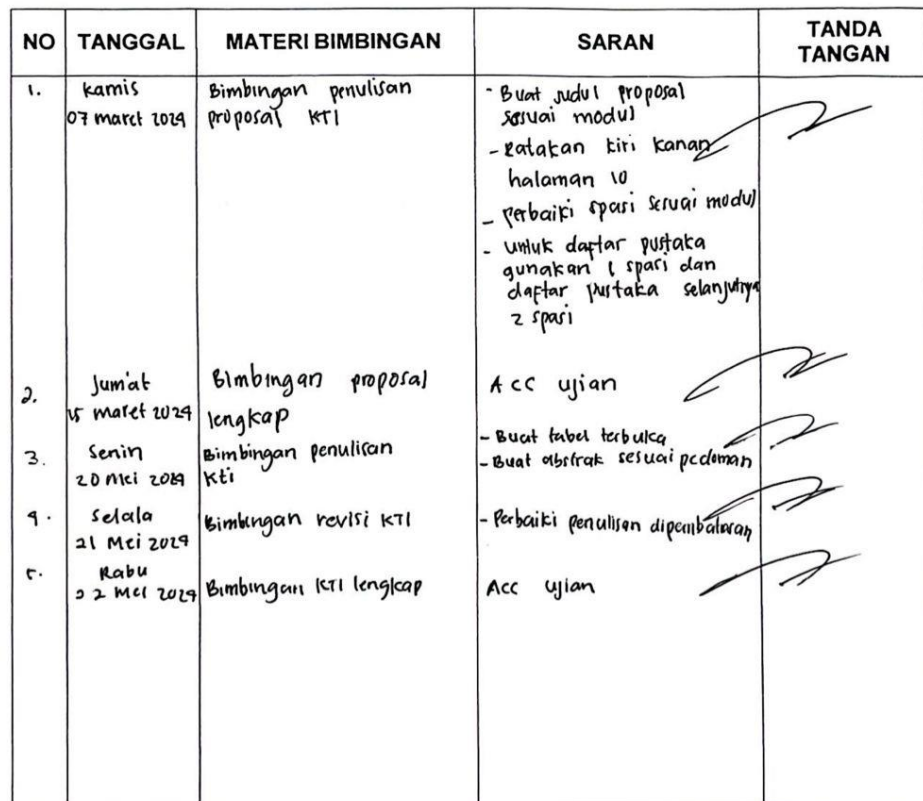 NO TANGGAL MATERI BIMBINGAN SARAN TANDA TANGAN
1. Kamis
07 maret 2024
Bimbingan penulisan
proposal KTI
- Buat judul proposal
sesuai modul
- Ratakan kiri kanan
halaman 10
- perbaiki spasi sesuai modul
- untuk daftar pustaka
gunakan 1 spasi dan
daftar pustaka selanjutnya
2 spasi
2. Jum'at
15 maret 2024
Bimbingan proposal
lengkap
Acc ujian
3. Senin
20 Mei 2024
Bimbingan penulisan
kti
- Buat tabel terbuka
- Buat abstrak sesuai pedoman
4. Selala
21 Mei 2024
Bimbingan revisi KTI
- Perbaiki penulisan dipembahasan
5. Rabu
22 Mei 2024
Bimbingan KTI lengkap
Acc ujian